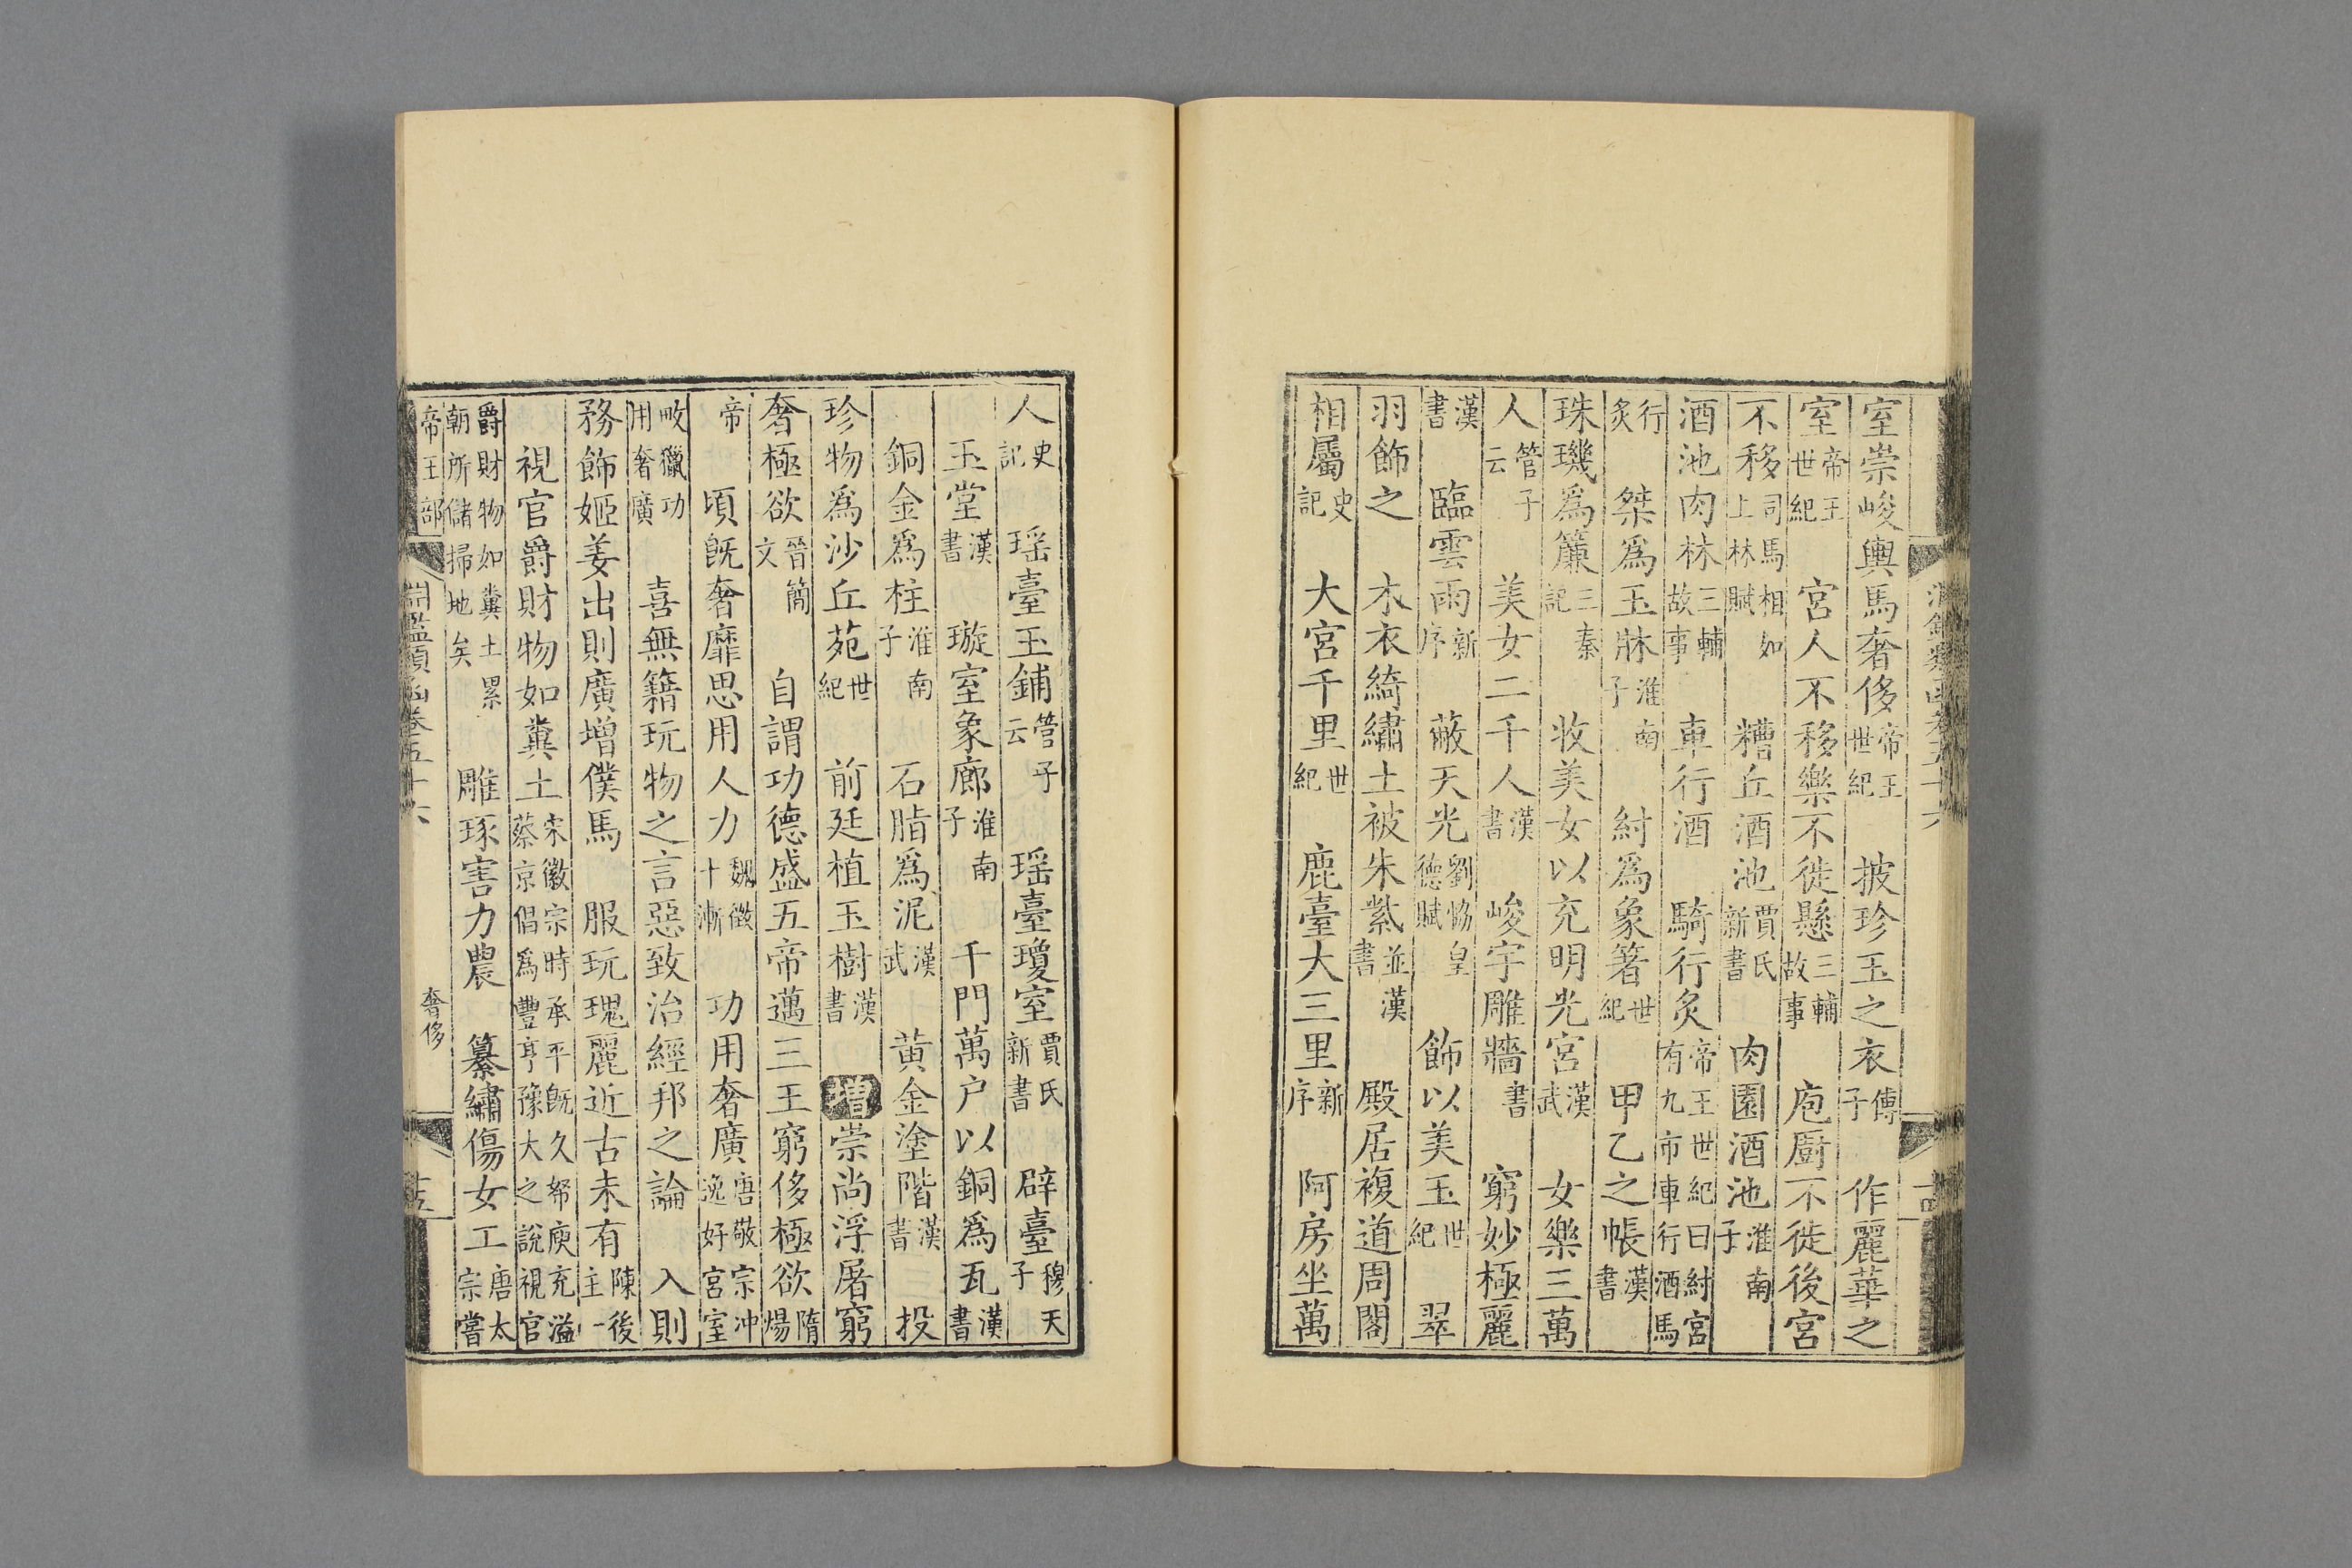 室崇峻輿馬奢侈帝王世紀 披珍玉之衣傅子 作麗華之
室帝王世紀 宮人不移樂不徙懸三輔故事 庖厨不徙後宮
不移司馬相如上林賦 糟丘酒池賈氏新書 肉園酒池淮南子
酒池肉林三輔故事 車行酒 騎行炙帝王世紀曰紂宮有九市車行酒馬
行炙 桀爲玉牀淮南子 紂爲象箸世紀 甲乙之帳漢書
珠璣爲簾三秦記 收美女以充明光宮漢武 女樂三萬
人管子云 美女二千人漢書 峻宇雕牆書 窮妙極麗
漢書 臨雲雨新序 蔽天光劉恊皇德賦 飾以美玉世紀 翠
羽飾之 木衣綺繡土被朱紫並漢書 殿居複道周閣
相屬史記 大宮千里世紀 鹿臺大三里新序 阿房坐萬
人史記 瑶臺玉鋪管子云 瑶臺瓊室賈氏新書 辟臺穆天子
玉堂漢書 璇室象廊淮南子 千門萬户以銅爲瓦漢書
銅金爲柱淮南子 石脂爲泥漢武 黃金塗階漢書 投
珍物爲沙丘苑世紀 前廷植玉樹漢書 增崇尚浮屠窮
奢極欲晉簡文 自謂功德盛五帝邁三王窮侈極欲隋煬
帝 頃旣奢靡思用人力魏徵十漸 功用奢廣唐敬宗冲逸好宮室
畋獵功用奢廣 喜無籍玩物之言惡致治經邦之論 入則
務飾姬姜出則廣增僕馬 服玩瑰麗近古未有陳後主一
視官爵財物如糞土宋徽宗時承平旣久帑庾充溢蔡京倡爲豐亨豫大之說視官
爵財物如糞土累朝所儲掃地矣 雕琢害力農 纂繡傷女工唐太宗嘗
帝王部 淵鑑類函卷五十六 奢侈 十五